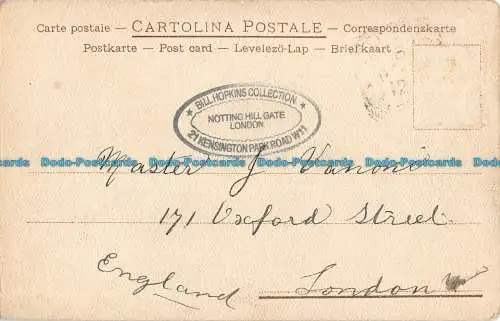 Carte postale — CARTOLINA POSTALE — Correspondenzkarte
Postkarte — Post card — Levelező-Lap — Briefkaart
BILL HOPKINS COLLECTION
NOTTING HILL GATE
LONDON
21 KENSINGTON PARK ROAD W11
Dodo-Postcards Dodo-Postcards Dodo-Postcards Dodo-Postcards Dodo-Postcards
Master J Vanoni
171 Oxford Street
England London W